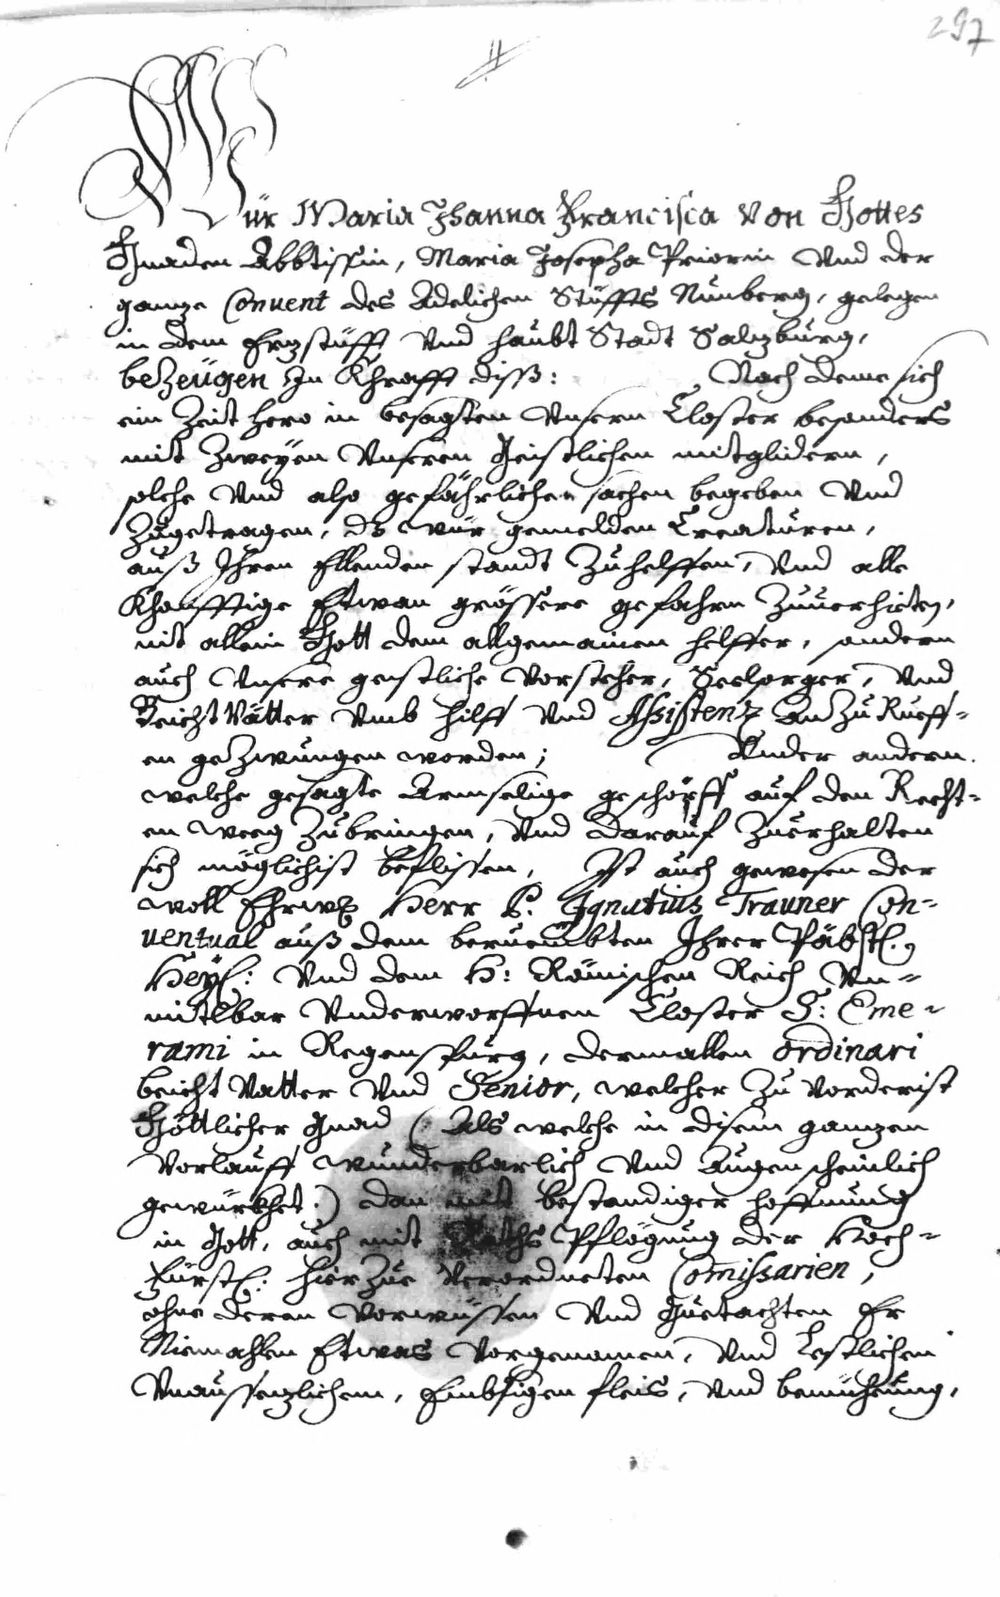 297
Wür Maria Jhanna Francisca von Gottes
Gnaden Abbtissin, Maria Josepha Priorin Vnd der
ganze Convent des Adelichen Stüffts Nunberg, gelegen
in dem Erzstüfft Vnd haubt Stadt Salzburg,
bezeügen In Khrafft diß: Nach deme sich
ein Zeit hero in besagten Vnsern Closter besonders
mit Zweyen Vnseren Geistlichen mitglidern,
solche Vnd also gefährlichen sachen begeben Vnd
Zugetragen, dz wür gemelden Creaturen,
auß Ihren Ellenden standt Zuhelffen, Vnd alle
Khonfftige Etwan grössere gefahrn Zuuerhieten,
nit allein Gott dem allgemainen helffer, sondern
auch Vnsere geistliche Vorsteher, Seelsorger, Vnd
Beicht Vätter Vmb hilff Vnd Assistenz an Zu Rueff=
en geZwungen worden; Vnder andern
welche gesagte Armselige geschöpff auf den Recht=
en weeg Zubringen, Vnd darauf Zuerhalten
sich möglichist beflissen, Ist auch gewesen der
woll Ehrw: Herr P. Ignatius Trauner Con=
uentual auß dem beruembten Ihrer Päbstl.
Heyl: Vnd dem H: Römischen Reich Vn=
mitlbar Vnderworffnen Closter S: Eme=
rami in Regenspurg, dermallen ordinari
beicht Vatter Vnd Senior, welcher Zu Vorderist
Göttlicher Gnad (Als welche in disem ganzen
Vorlauff wunderbarlich Vnd Augenscheinlich
gewürkhet.) dan mit bestandiger hoffnung
in Gott, auch mit Raths Pflögung der Hoch=
fürstl: hierzue Verordneten Comissarien,
ohne deren Vorwüssen Vnd Guetachten Er
Niemahlen Etwas Vorgenomen, Vnd Lestlichen
Vnaussezlichem, Embsigen fleis, Vnd bemüehung,